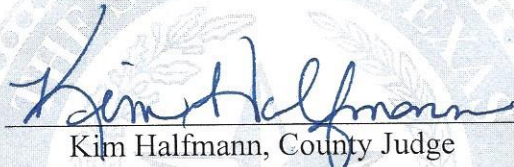 Kim Halfmann
Kim Halfmann, County Judge